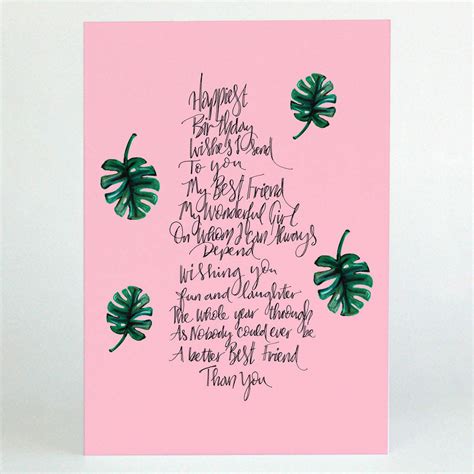 Happiest
Birthday
Wishes I send
To you
My Best Friend
My Wonderful Girl
On Whom I can Always
Depend
Wishing you
fun and laughter
The whole year through
As Nobody could ever be
A better Best Friend
Than You